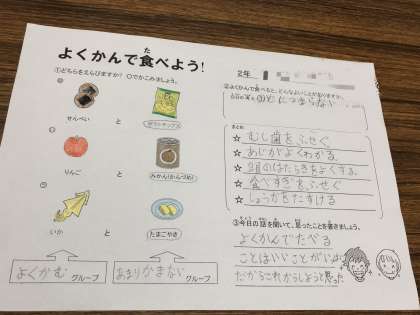 よくかんで食べよう!
た
①どちらをえらびますか? ○でかこみましょう。
せんべい と ポテトチップス
りんご と みかん(かんづめ)
いか と たまごやき
よくかむ グループ
あまりかまない グループ
2年
②よくかんで食べると、どんなよいことがありますか。
のどにつまらない
まとめ
☆ むし歯をふせぐ
☆ あじがよくわかる
☆ のはたらきをよくする
☆ 食べすぎをふせぐ
☆ しょうかをたすける
③今日の話を聞いて、思ったことを書きましょう。
よくかんでたべる
ことはいいことがい
だからこれからしようと思った